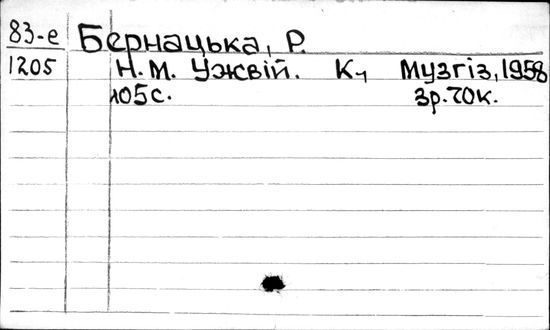 83-е Бернацька, Р.
1205 Н. М. Ужвій. К., Музгіз, 1958
105 с. 3р. 70к.